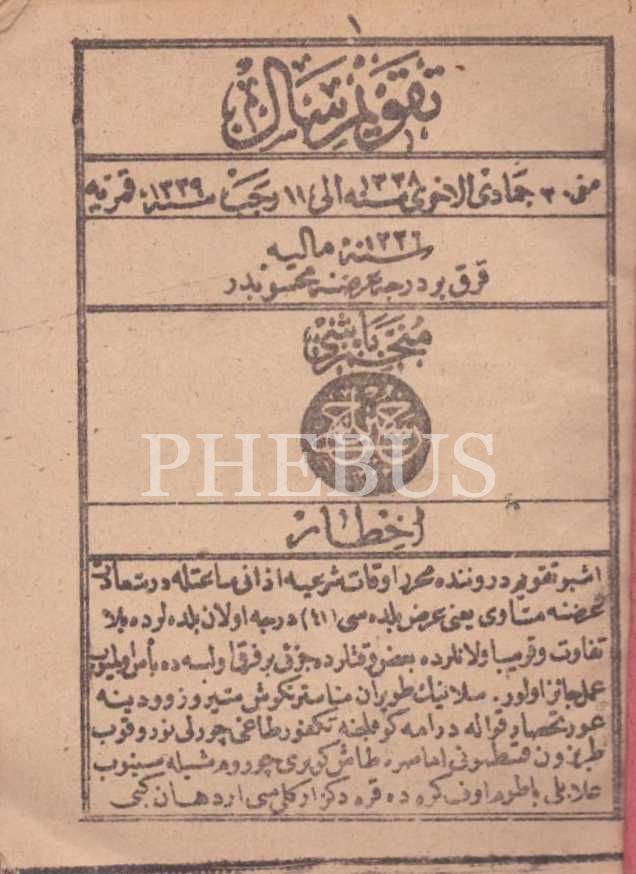 ١
تقويم سال
من ٣٠ جمادى الاخرى سنه ١٣٣٨ الى ١١ رجب سنهٔ ١٣٣٩ قمريه
سنهٔ ١٣٣٦ ماليه
قرق بر درجه عرضنه محسوبدر
منجم باشى
PHEBUS
اخطار
اشبو تقويم دروننده محرر اوقات شرعيه اذانى ساعتله درسعادت
عرضنه مساوى يعنى عرض بلده سى (٤١) درجه اولان بلده لرده بلا
تفاوت و قريب اولانلرده بعض وقتلرده جزئى بر فرق اولسه ده بأس اولميوب
عمل جائز اولور . سلانيك طويران مناستر كوش متيروز وودينه
عورتحصار قواله درامه كوملجنه تكفور طاغى چورلى نوروقوب
طربزون قسطمونى اماسيه طاش كوپرى چوروم شيله سينوب
علايلى باطوم اوف كره ده قره دكز اركليسى اردهان كبى